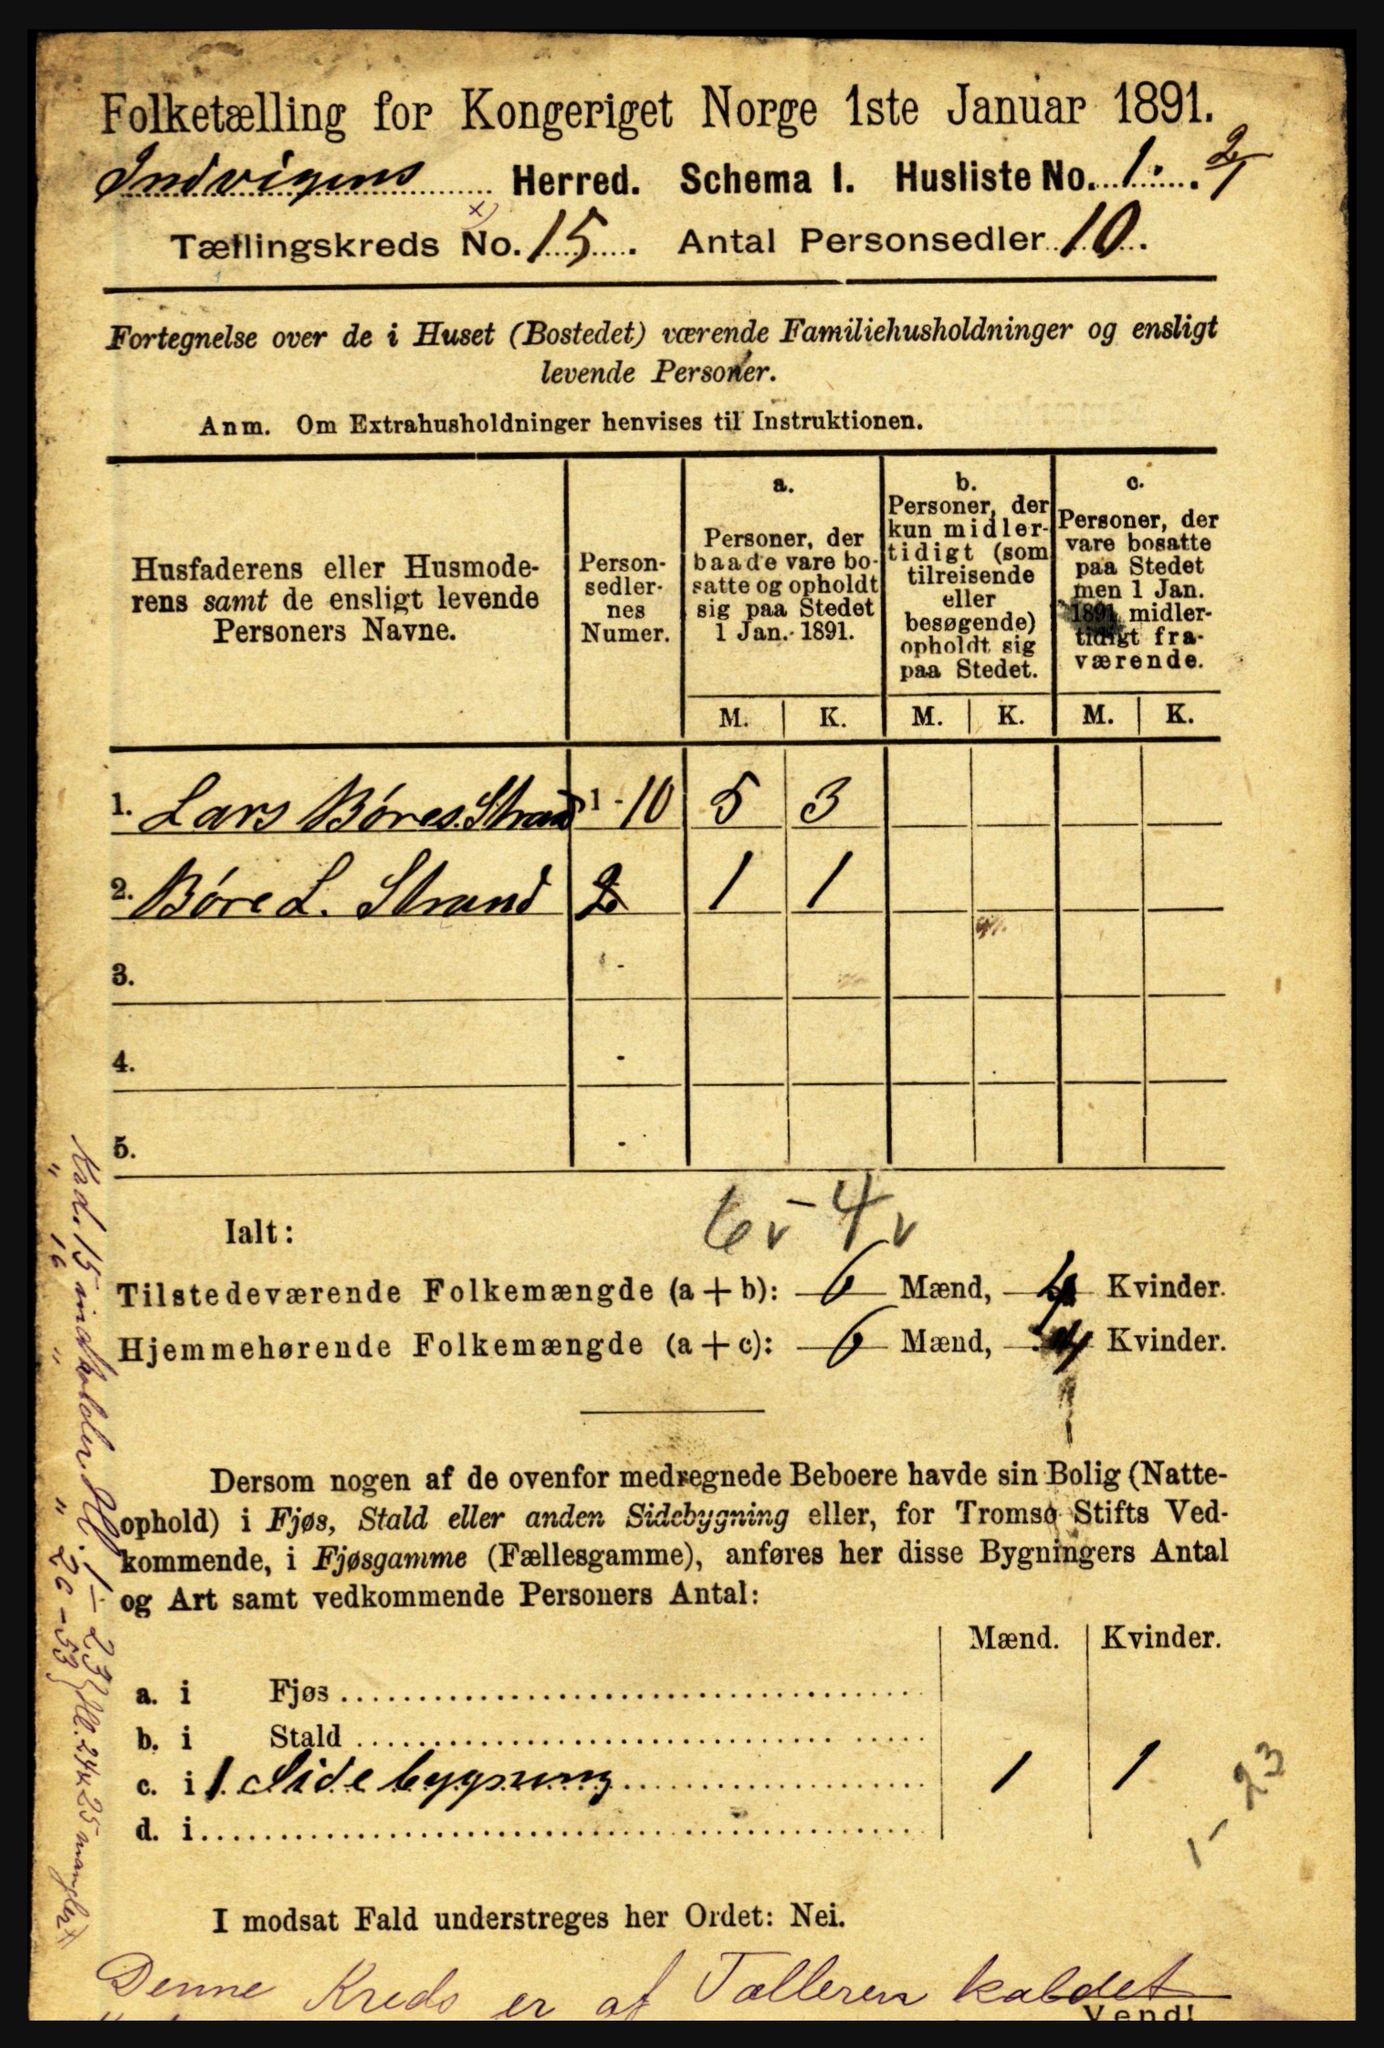 Folketælling for Kongeriget Norge 1ste Januar 1891.
Indvigens Herred. Schema I. Husliste No. 1. 2/1
Tællingskreds No. 15. Antal Personsedler 10.
x)
Fortegnelse over de i Huset (Bostedet) værende Familiehusholdninger og ensligt
levende Personer.
Anm. Om Extrahusholdninger henvises til Instruktionen.
Husfaderens eller Husmode-
rens samt de ensligt levende
Personers Navne.
Person-
sedler-
nes
Numer.
a.
Personer, der
baade vare bo-
satte og opholdt
sig paa Stedet
1 Jan. 1891.
b.
Personer, der
kun midler-
tidigt (som
tilreisende
eller
besøgende)
opholdt sig
paa Stedet.
c.
Personer, der
vare bosatte
paa Stedet
men 1 Jan.
1891 midler-
tidigt fra-
værende.
M. K. M. K. M. K.
1. Lars Børes. Strand 1 - 10 5 3
2. Børe L. Strand 2 1 1
3. -
4. -
5. -
6 v - 4 v
Ialt:
Tilstedeværende Folkemængde (a + b): 6 Mænd, 4 Kvinder.
Hjemmehørende Folkemængde (a + c): 6 Mænd, 4 Kvinder.
Dersom nogen af de ovenfor medregnede Beboere havde sin Bolig (Natte-
ophold) i Fjøs, Stald eller anden Sidebygning eller, for Tromsø Stifts Ved-
kommende, i Fjøsgamme (Fællesgamme), anføres her disse Bygningers Antal
og Art samt vedkommende Personers Antal:
Mænd. Kvinder.
a. i Fjøs
b. i Stald
c. i 1 Sidebygning 1 1
d. i
1 - 23
I modsat Fald understreges her Ordet: Nei.
Denne Kreds er af Tælleren kaldet
Vend!
Krd. 15 indholder Hl. 1 - 23
" 16 " " 26 - 53 } Hl. 24 & 25 mangler